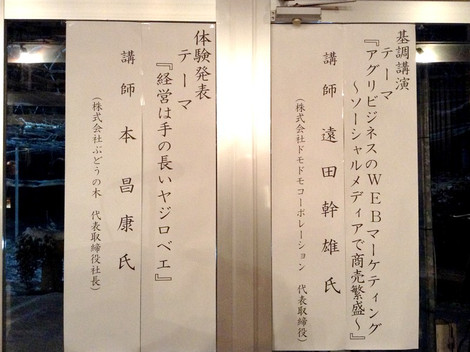 基調講演
テーマ
『アグリビジネスのＷＥＢマーケティング
～ソーシャルメディアで商売繁盛～』
講師 遠田幹雄氏
（株式会社ドモドモコーポレーション 代表取締役）
体験発表
テーマ
『経営は手の長いヤジロベエ』
講師 本昌康氏
（株式会社ぶどうの木 代表取締役社長）